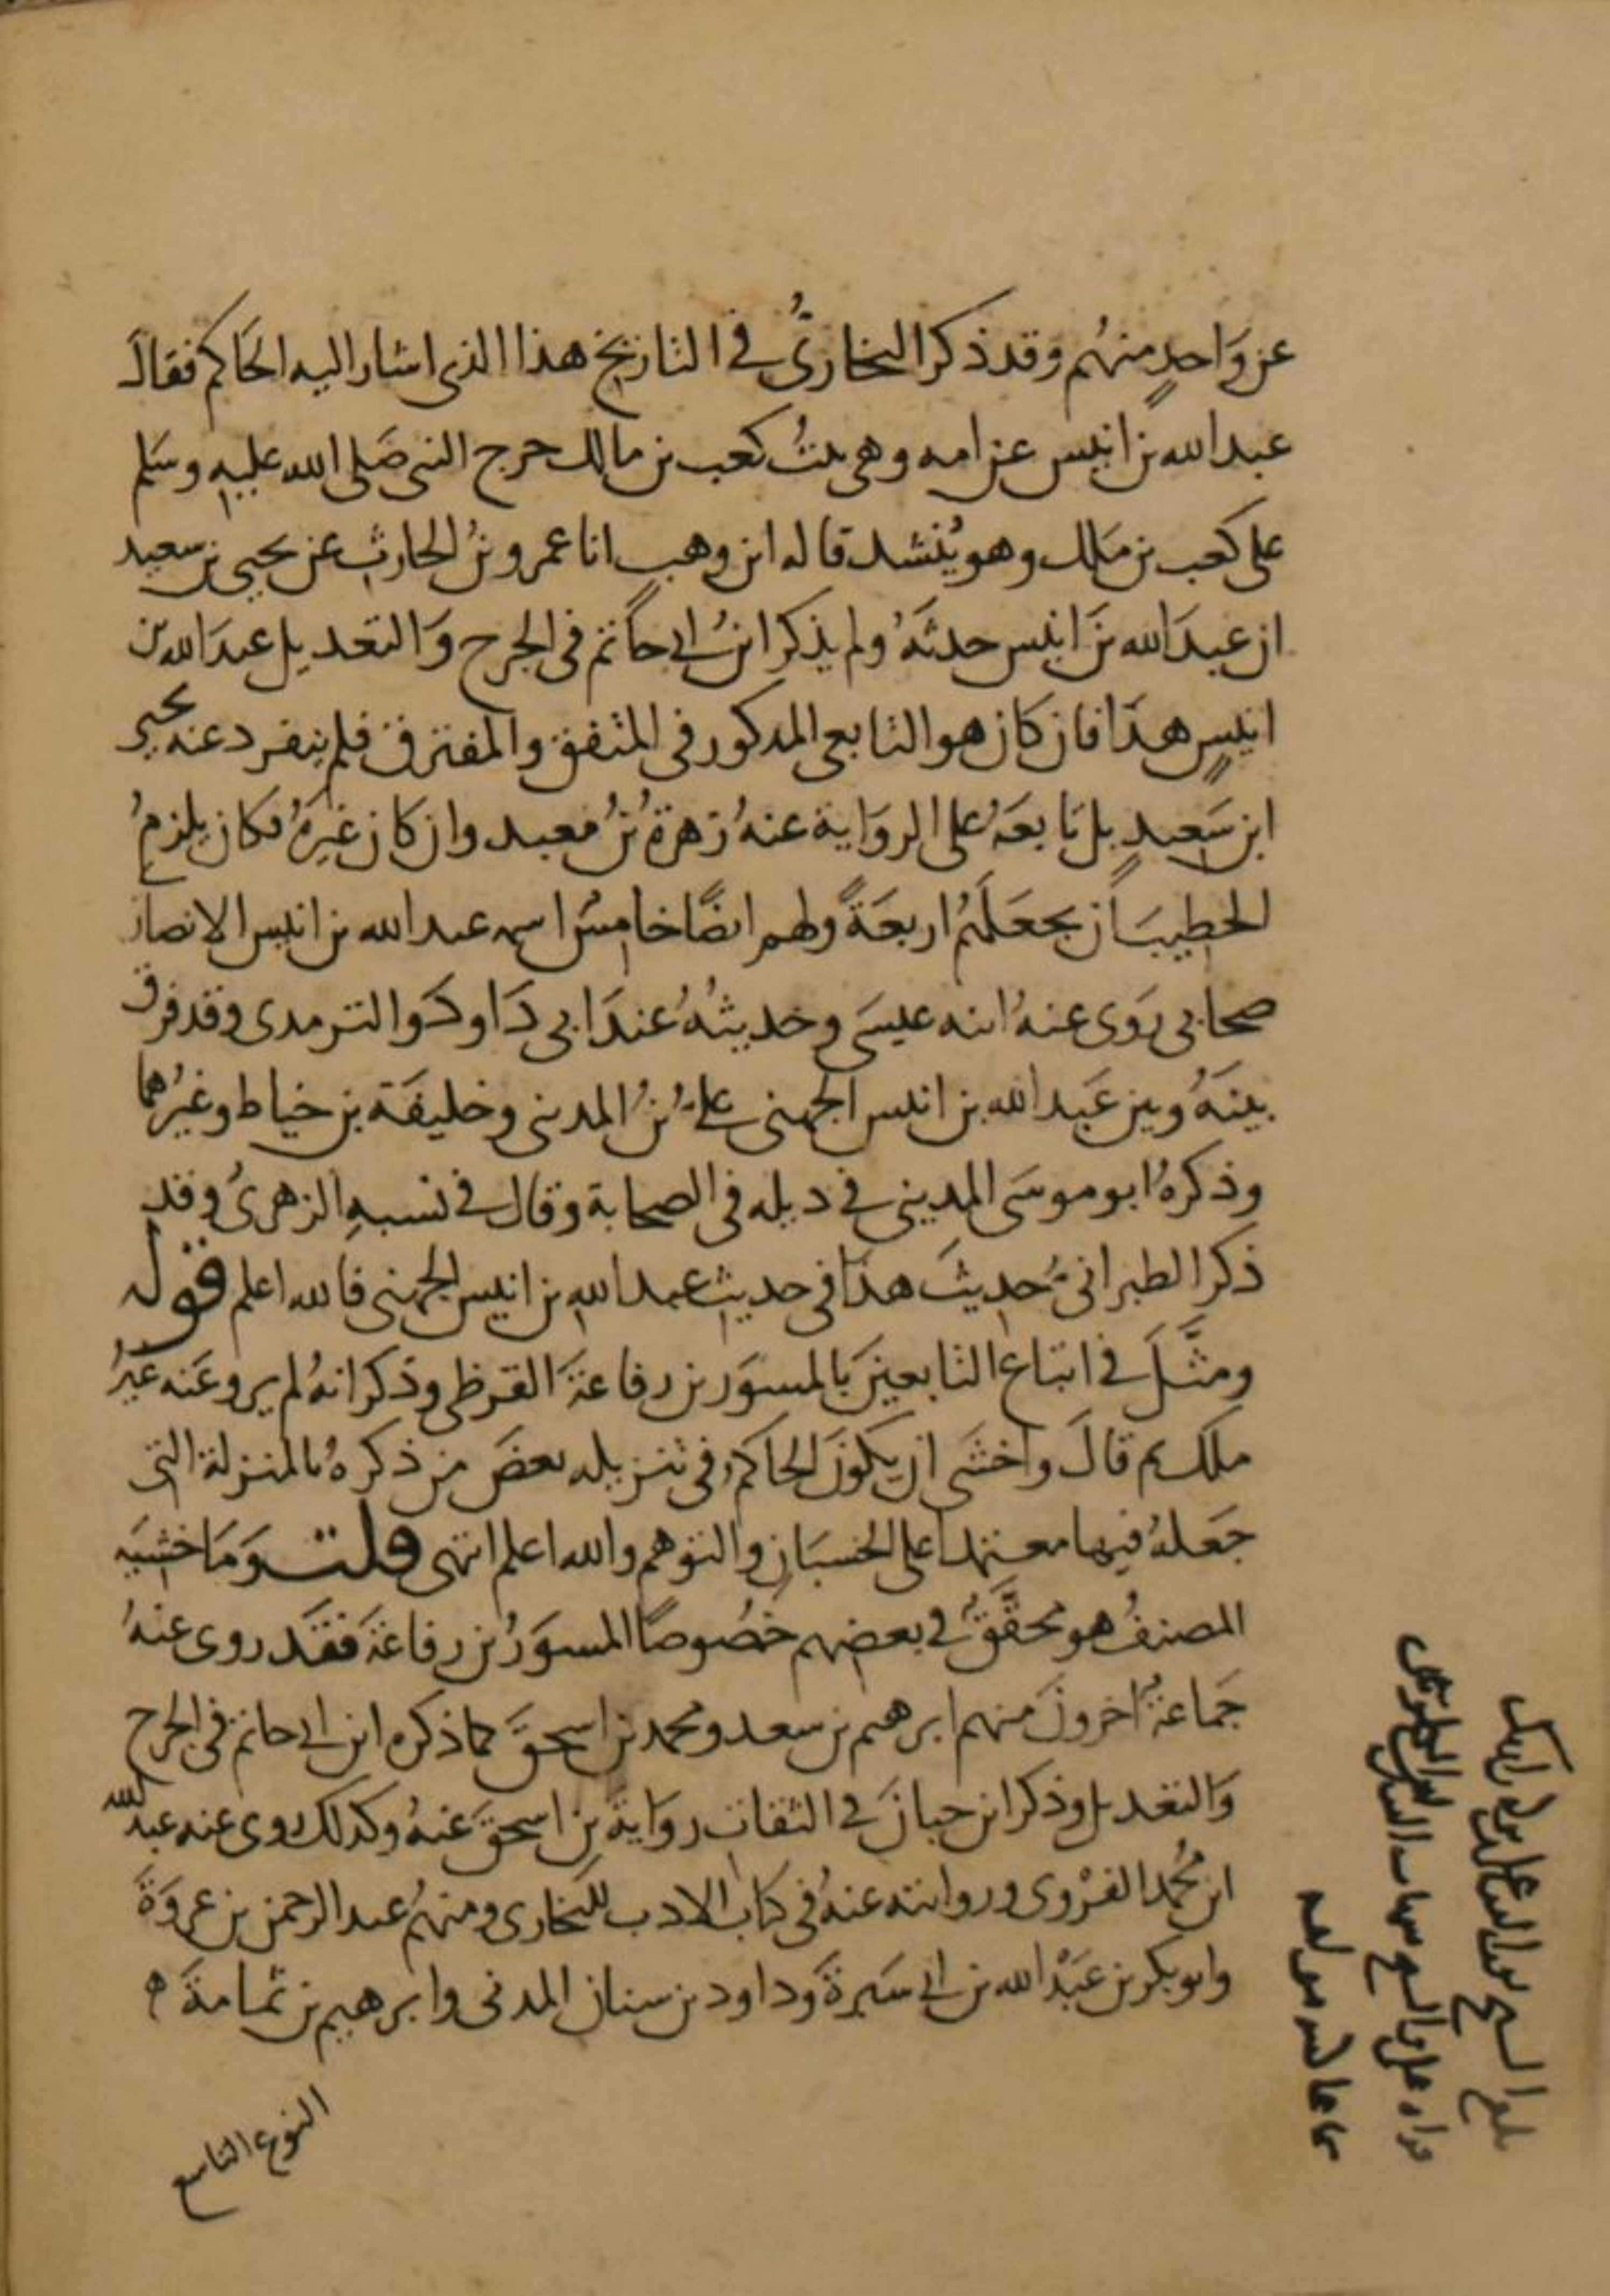 عن واحد منهم وقد ذكر البخاريُّ في التاريخ هذا الذي اشار اليه الحاكم فقال
عبد الله بن انيس عن امه وهي بنتُ كعب بن مالك خرج النبي صَلى الله عليه وسَلم
على كعب بن ملك وهو يُنشد قاله ابن وهب انا عمرو بنُ الحارث عن يحيى بن سعيد
ان عبدَ الله بنَ انيس حدثهُ ولم يذكر ابنُ ابي حاتم في الجرح وَالتعديل عبدَ الله بن
انيسٍ هذا فان كان هو التابعي المذكور في المتفق والمفترق فلم ينفرد عنه يحيى
ابن سَعيدٍ بل تابعَهُ على الروَاية عنهُ زهرةُ بنُ معبد وان كان غيرَهُ فكان يلزمُ
الخطيبَ ان يجعَلَهُم اربعَةً ولهم ايضًا خامسٌ اسمه عبد الله بن انيس الانصاري
صحابي رَوَى عنهُ ابنه عيسَى وحديثُهُ عندَ ابي دَاود وَالترمذي وقد فرق
بينَهُ وبين عَبد الله بن انيس الجهني عليُّ بنُ المديني وخليفَة بن خياط وغيرُهما
وذكرهُ ابو موسَى المديني في ذيله في الصحابة وقال في نسبهِ الزهريُ وقد
ذكر الطبرانيُّ حديثَ هذا في حديث عبد الله بن انيس الجهني فالله اعلم قوله
ومثَّلَ في اتباع التابعينَ بالمسوَر بن رفاعَة القرظي وذكر انهُ لم يرو عَنه غيرُ
ملك ثم قالَ واخشَى ان يكونَ الحاكم في تنزيله بعضَ من ذكرهُ بالمنزلة التي
جَعَلهُ فيها معتمدا على الحسبَان والتوهم والله اعلم انتهى قلت وَمَا خشيَه
المصنفُ هو محقَّقٌ في بعضهم خصُوصًا المسوَرُ بن رفاعَة فقَد روى عنهُ
جَمَاعةٌ اخرونَ منهم ابرهيم بن سعد ومحمد بن اسحقَ كما ذكره ابن ابي حاتم في الجرح
وَالتعديل وذكر ابن حبانَ في الثقات روَايةَ بنِ اسحقَ عنهُ وكذلك روى عنه عبد الله
ابن مُحمد الفرْوي وروايته عنهُ في كتاب الادب للبخاري ومنهُم عبد الرحمن بن عروَةَ
وابو بكر بن عَبْد الله بن ابي سَبرةَ وَداود بن سنان المدني وابرهيم بن ثمامةَ ه
النوع التاسع